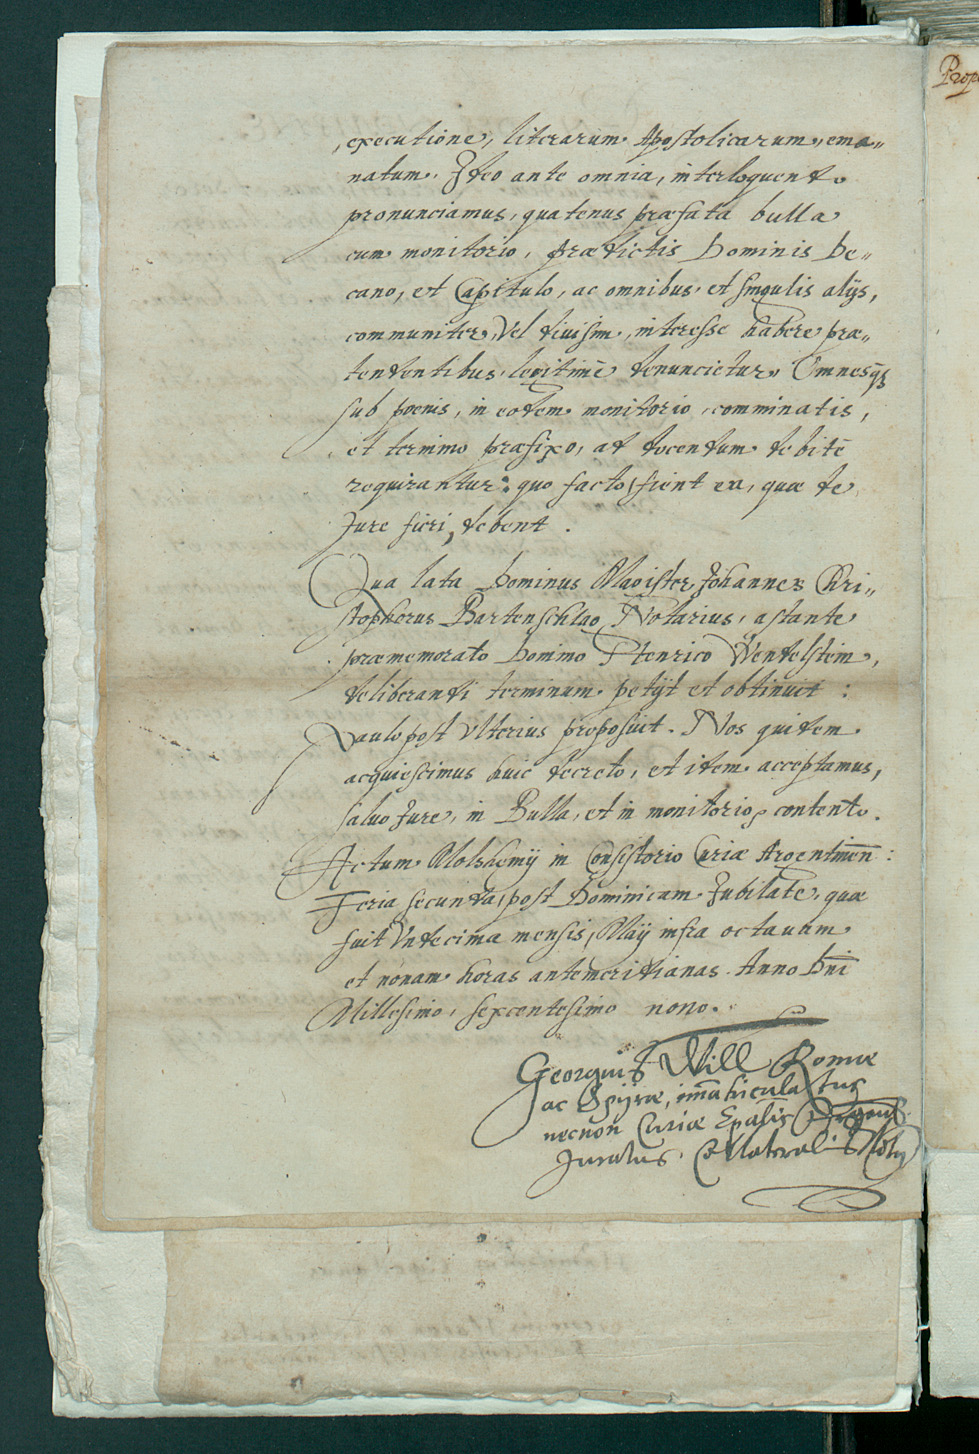 executione, literarum Apostolicarum, ema„
natum. Ideo ante omnia, interloquendo
pronunciamus, quatenus præfata bulla
cum monitorio, prædictis Dominis De„
cano, et Capitulo, ac omnibus, et singulis alijs,
communiter, Vel diuisim, interesse habere præ„
tendentibus, legitimè denuncietur, Omnesq3
sub poenis, in eodem monitorio, comminatis,
et termino præfixo, ad docendum debitè
requirantur: quo facto, fient ea, quæ de
Jure fieri, debent.
Qua lata Dominus Magister, Johannes Chri„
stophorus Bartenschlag, Notarius, astante
præmemorato Domino Henrico Wendelstein,
deliberandi terminum petijt et obtinuit:
Paulo post Vlterius proposuit. Nos quidem
acquiescimus huic decreto, et idem acceptamus,
saluo Jure, in Bulla, et in monitorio, contento.
Actum Molshemij in Consistorio Curiæ Argentinen:
Feria secunda, post Dominicam Jubilate, quæ
fuit Vndecima mensis, Maij infra octauam
et nonam horas antemeridianas. Anno Dni
Millesimo, sexcentesimo nono.
Georgius Will Romæ
ac Spijræ, immatriculatus
necnon Curiæ Epalis Argent
Juratus Collateralis Notq
Prop